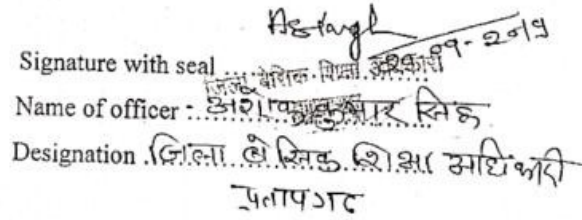 Signature with seal ..... जिला बेसिक शिक्षा अधिकारी 09-2019
Name of officer : अशोक कुमार सिंह
Designation जिला बेसिक शिक्षा अधिकारी
प्रतापगढ